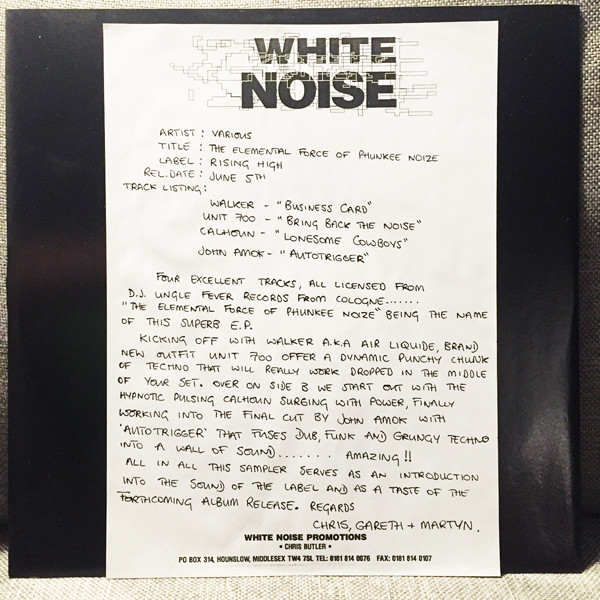 WHITE
NOISE
ARTIST : VARIOUS
TITLE : THE ELEMENTAL FORCE OF PHUNKEE NOIZE
LABEL : RISING HIGH
REL. DATE : JUNE 5TH
TRACK LISTING :
WALKER - "BUSINESS CARD"
UNIT 700 - "BRING BACK THE NOISE"
CALHOUN - "LONESOME COWBOYS"
JOHN AMOK - "AUTOTRIGGER"
FOUR EXCELLENT TRACKS, ALL LICENSED FROM
D.J. UNGLE FEVER RECORDS FROM COLOGNE.......
"THE ELEMENTAL FORCE OF PHUNKEE NOIZE" BEING THE NAME
OF THIS SUPERB E.P.
KICKING OFF WITH WALKER A.K.A AIR LIQUIDE, BRAND
NEW OUTFIT UNIT 700 OFFER A DYNAMIC PUNCHY CHUNK
OF TECHNO THAT WILL REALLY WORK DROPPED IN THE MIDDLE
OF YOUR SET. OVER ON SIDE B WE START OUT WITH THE
HYPNOTIC PULSING CALHOUN SURGING WITH POWER, FINALLY
WORKING INTO THE FINAL CUT BY JOHN AMOK WITH
'AUTOTRIGGER' THAT FUSES DUB, FUNK AND GRUNGY TECHNO
INTO A WALL OF SOUND....... AMAZING !!
ALL IN ALL THIS SAMPLER SERVES AS AN INTRODUCTION
INTO THE SOUND OF THE LABEL AND AS A TASTE OF THE
FORTHCOMING ALBUM RELEASE. REGARDS
CHRIS, GARETH + MARTYN.
WHITE NOISE PROMOTIONS
• CHRIS BUTLER •
PO BOX 314, HOUNSLOW, MIDDLESEX TW4 7SL TEL: 0181 814 0076 FAX: 0181 814 0107